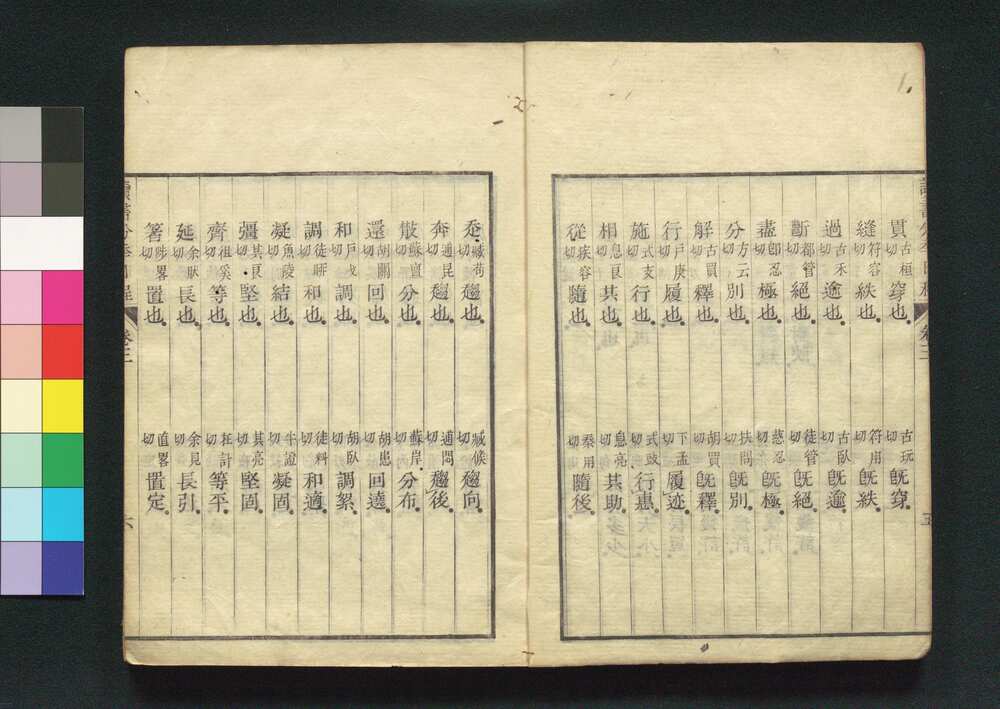 貫 古桓切 穿也 古玩切 旣穿
縫 符容切 紩也 符用切 旣紩
過 古禾切 逾也 古臥切 旣逾
斷 都管切 絕也 徒管切 旣絕
盡 卽忍切 極也 慈忍切 旣極
分 方云切 別也 扶問切 旣別
解 古買切 釋也 胡買切 旣釋
行 戸庚切 履也 下孟切 履迹
施 式支切 行也 式豉切 行惠
相 息良切 共也 息亮切 共助
從 疾容切 隨也 秦用切 隨後
讀書分年日程 卷三 五
走 臧苟切 趨也 臧候切 趨向
奔 逋昆切 趨也 逋問切 趨後
散 蘇亶切 分也 蘇岸切 分布
還 胡關切 回也 胡患切 回遶
和 戸戈切 調也 胡臥切 調絮
調 徒聊切 和也 徒料切 和適
凝 魚陵切 結也 牛證切 凝固
彊 其良切 堅也 其亮切 堅固
齊 徂奚切 等也 在計切 等平
延 余 切 長也 余見切 長引
箸 陟畧切 置也 直畧切 置定
讀書分年日程 卷三 六